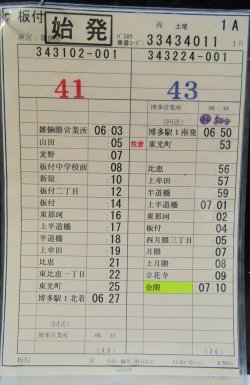 板付 始発 土曜 1A
乗番コード: 33434011
343102-001 343224-001
41 43
博多営業所 06:48
(回送)
雑餉隈営業所 06 03
山田 :05
麦野 :07
板付中学校前 :08
新屋 :10
板付二丁目 :12
板付 :14
東那珂 :16
上半道橋 :17
半道橋 :18
上牟田 :19
比恵 :21
東比恵一丁目 :22
東光町 :25
博多駅1北着 06:27
博多駅1南発 06 50
注意 東光町 :53
比恵 :56
上牟田 :57
半道橋 :59
上半道橋 07 01
東那珂 :02
板付 :04
西月隈三丁目 :05
月隈 :07
上月隈 :08
立花寺 :09
金隈 07 10
(回送)
(15) (20)
板付